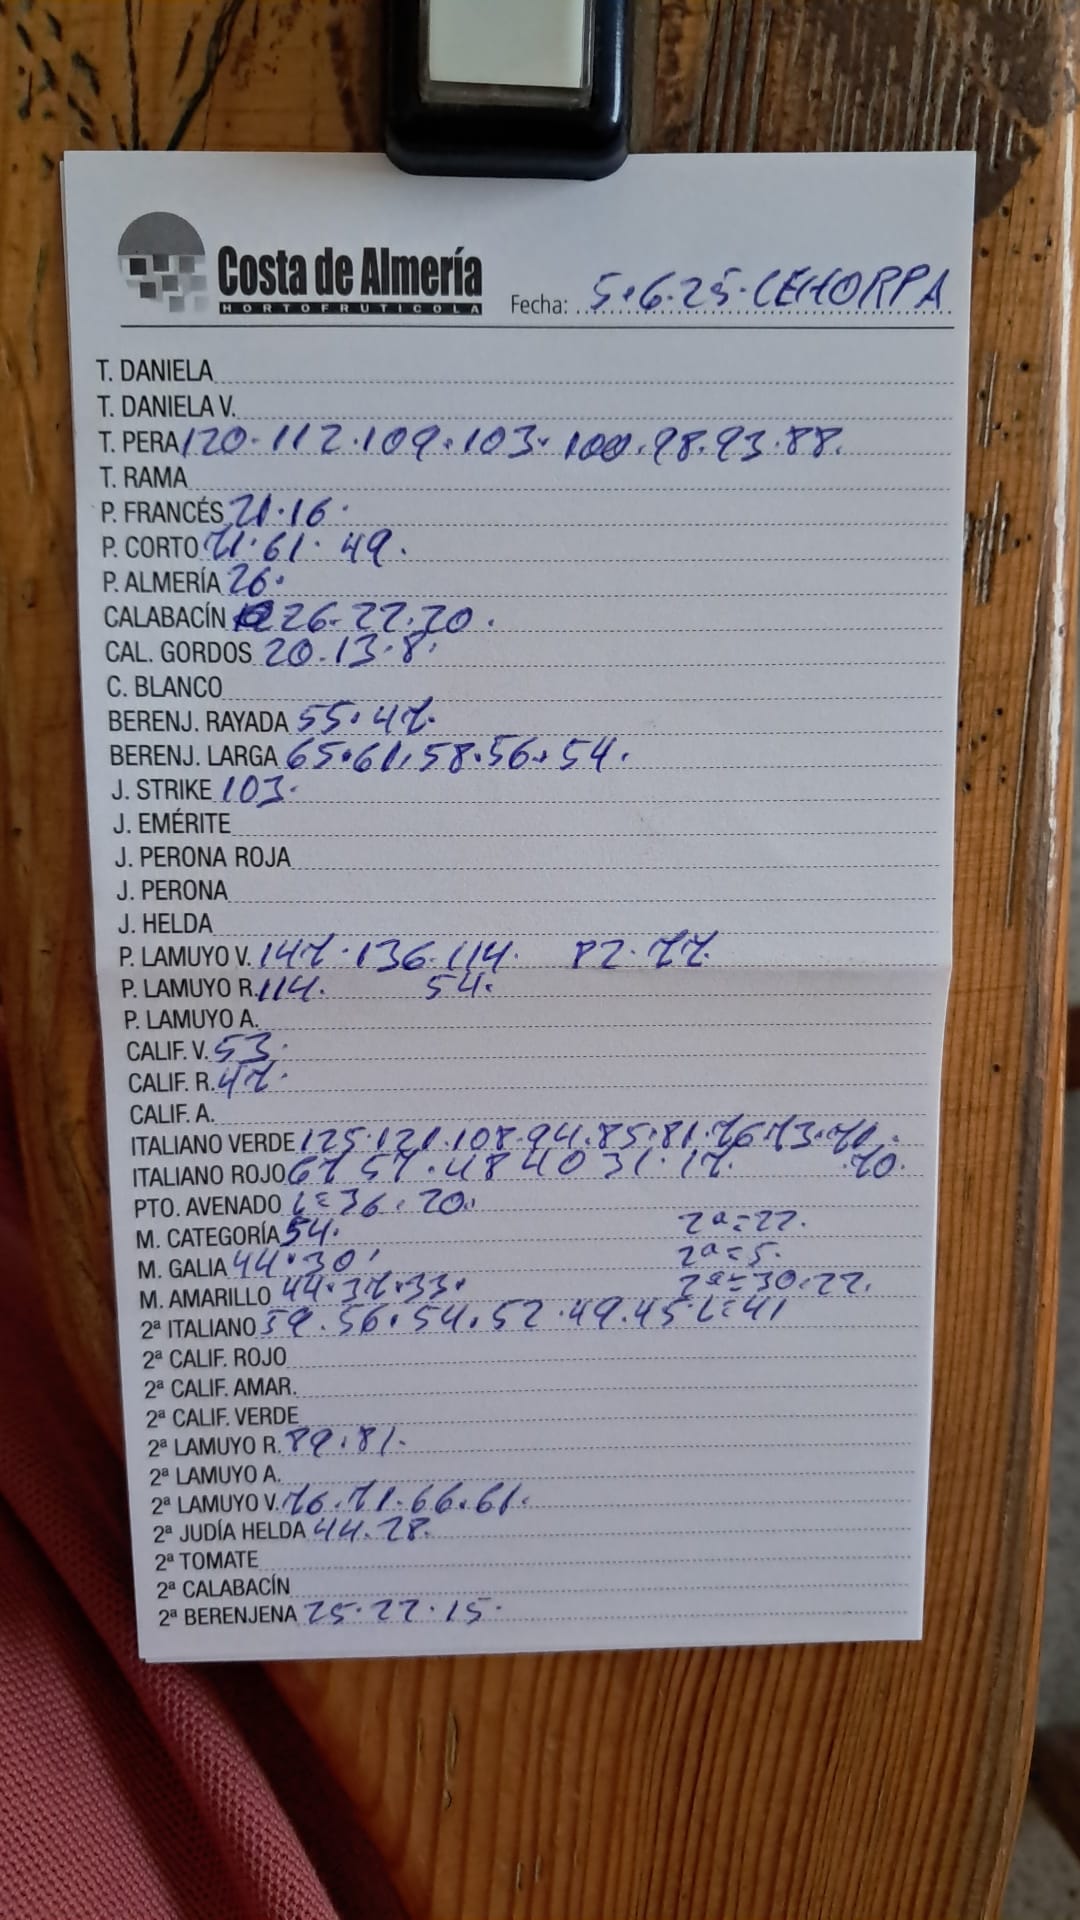 Costa de Almería
HORTOFRUTICOLA
Fecha: 5.6.25. CEHORPA
T. DANIELA
T. DANIELA V.
T. PERA 120. 112. 109. 103. 100. 98. 93. 88.
T. RAMA
P. FRANCÉS 21. 16.
P. CORTO 71. 61. 49.
P. ALMERÍA 26.
CALABACÍN 26. 22. 20.
CAL. GORDOS 20. 13. 8.
C. BLANCO
BERENJ. RAYADA 55. 47.
BERENJ. LARGA 65. 61. 58. 56. 54.
J. STRIKE 103.
J. EMÉRITE
J. PERONA ROJA
J. PERONA
J. HELDA
P. LAMUYO V. 147. 136. 114. 82. 77.
P. LAMUYO R. 114. 54.
P. LAMUYO A.
CALIF. V. 53.
CALIF. R. 47.
CALIF. A.
ITALIANO VERDE 125. 121. 108. 94. 85. 81. 76. 73. 71.
ITALIANO ROJO 67 57. 48 40 31. 17. 70.
PTO. AVENADO L= 36. 20.
M. CATEGORÍA 54. 2ª = 22.
M. GALIA 44. 30. 2ª = 5.
M. AMARILLO 44. 37. 33. 2ª = 30. 22.
2ª ITALIANO 59. 56. 54. 52. 49. 45 L= 41
2ª CALIF. ROJO
2ª CALIF. AMAR.
2ª CALIF. VERDE
2ª LAMUYO R. 89. 81.
2ª LAMUYO A.
2ª LAMUYO V. 76. 71. 66. 61.
2ª JUDÍA HELDA 44. 28.
2ª TOMATE
2ª CALABACÍN
2ª BERENJENA 25. 22. 15.